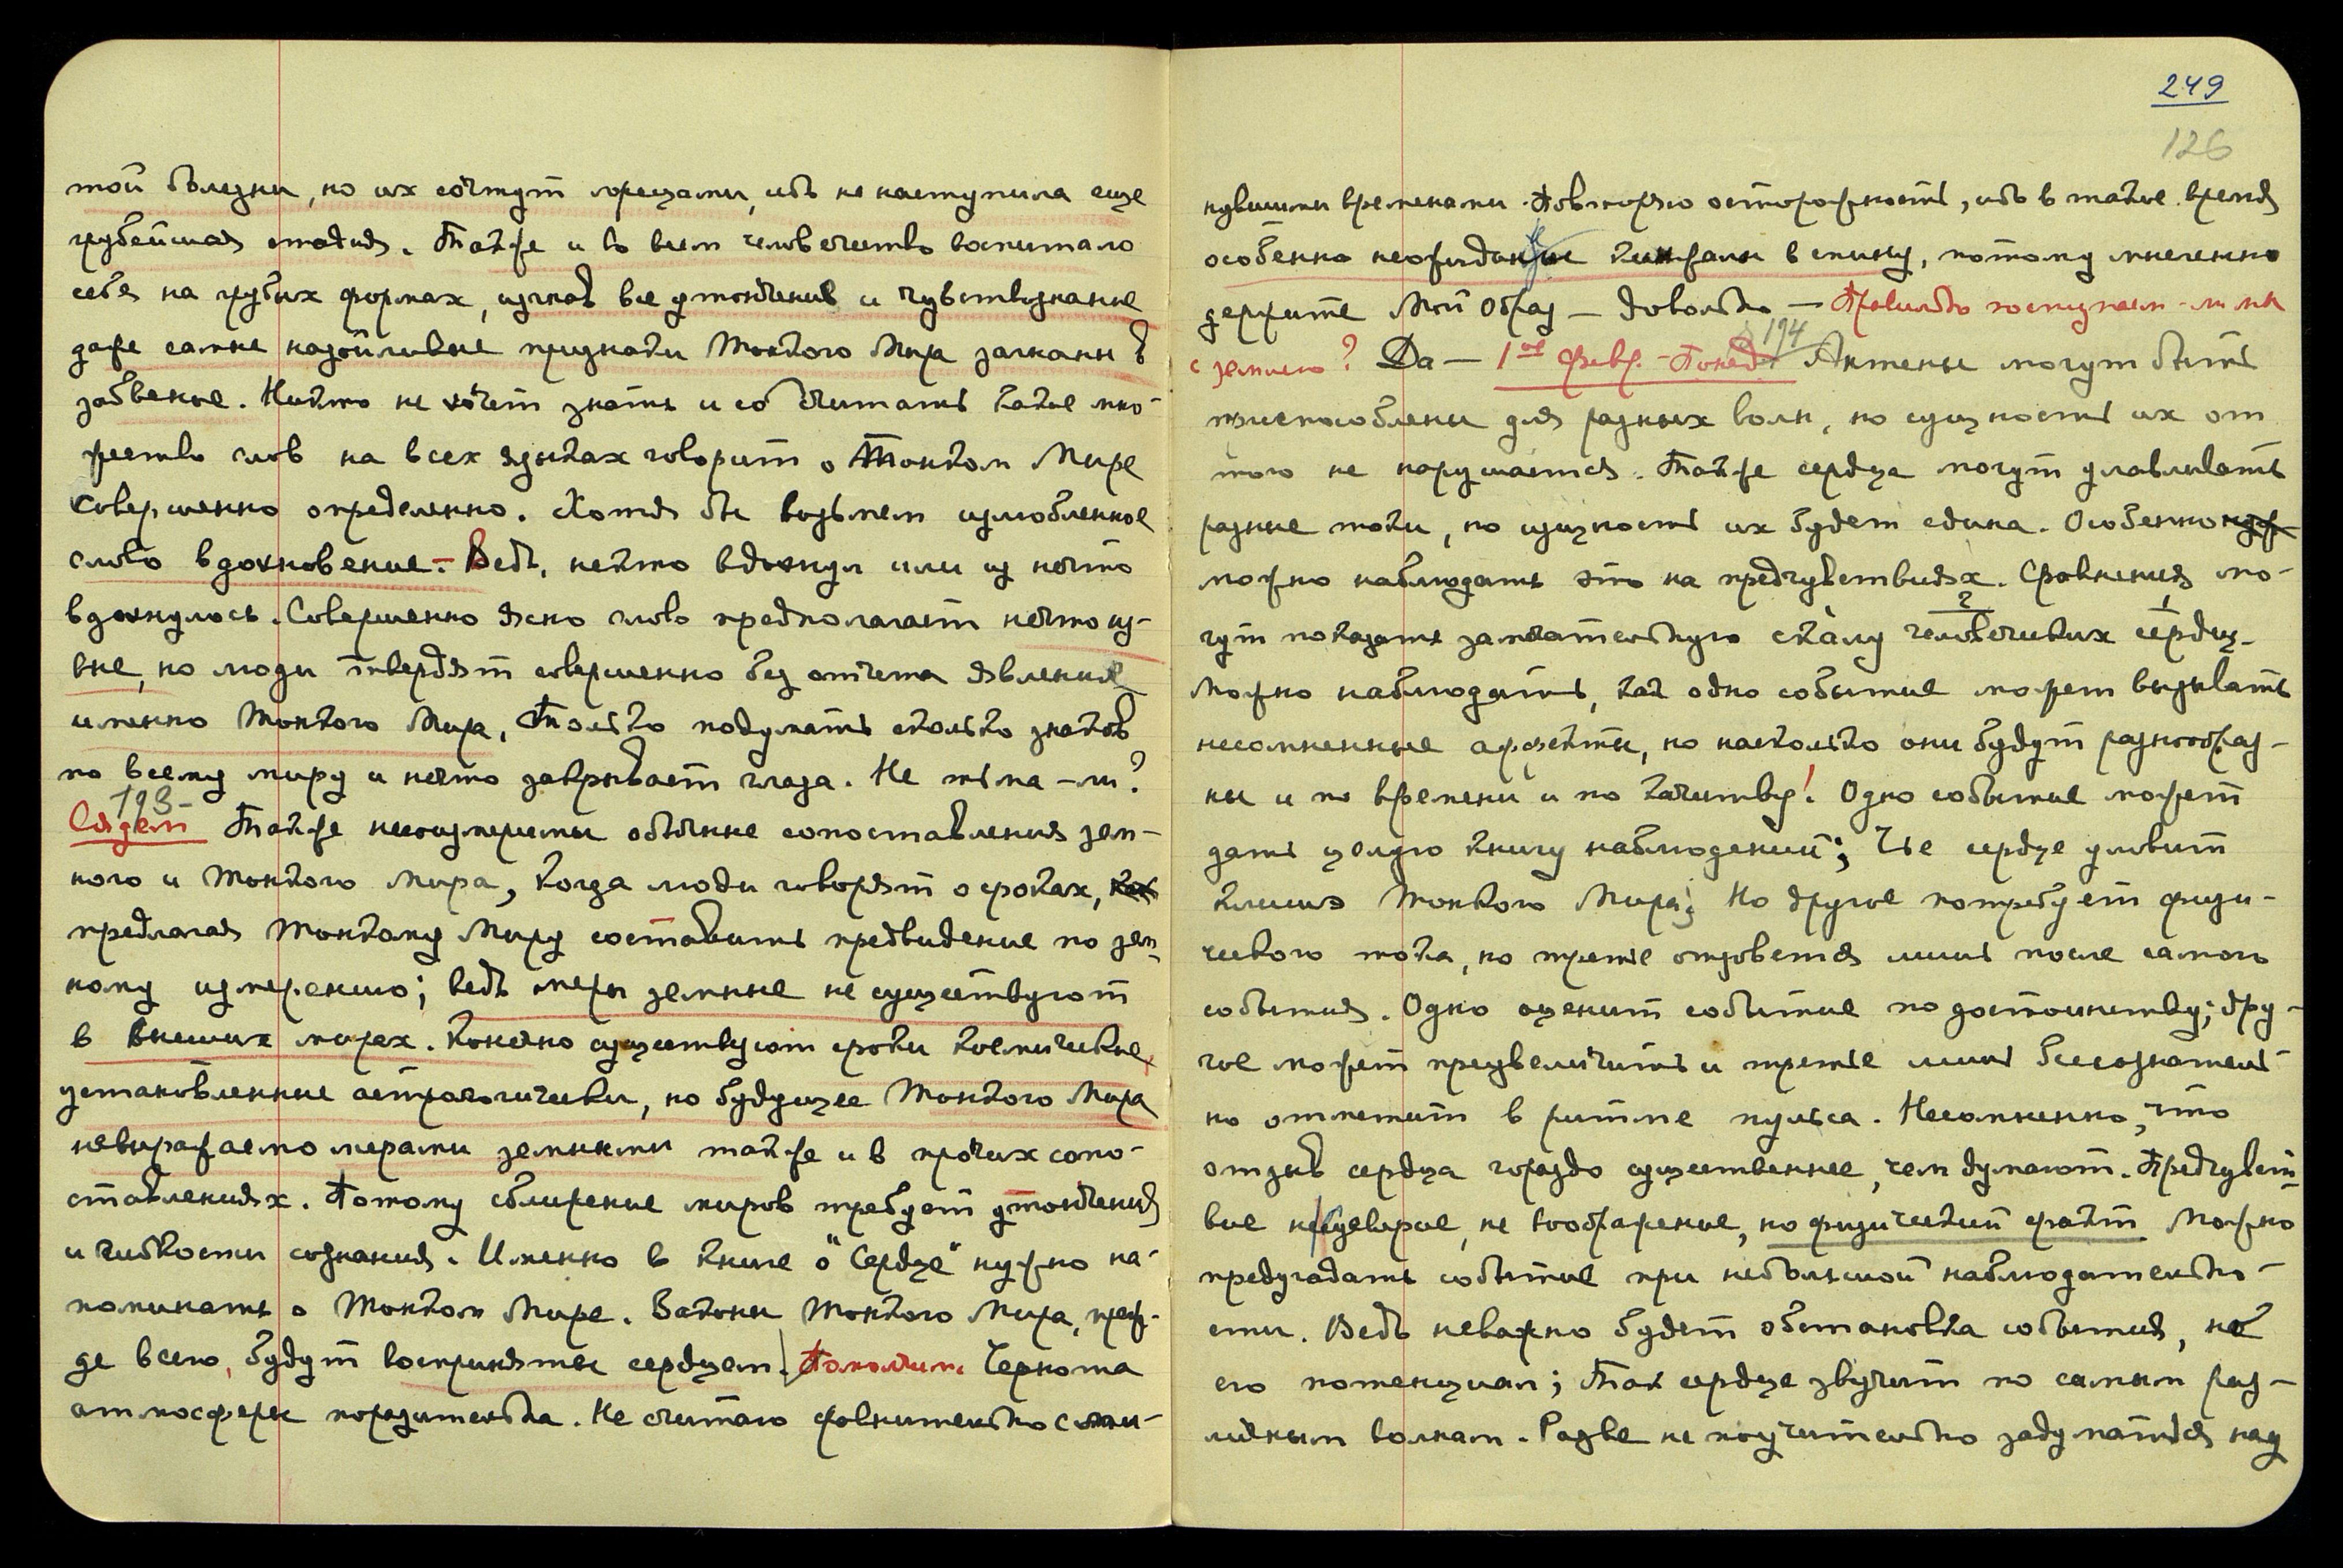 той болезни, но их сочтут лжецами, ибо не наступила еще
грубейшая стадия. Также и во всем человечество воспитало
себя на грубых формах, изгнав все утончения и чувствознание
даже самые назойливые признаки Тонкого Мира загнаны в
забвение. Никто не хочет знать и со считать какое мно-
жество слов на всех языках говорит о Тонком Мире
совершенно определенно. Хотя бы возьмем излюбленное
слово вдохновение. – Ведь, некто вдохнул или из нечто
вдохнулось. Совершенно ясно слово предполагает нечто из-
вне, но люди твердят совершенно без отчета явления
именно Тонкого Мира. Только подумать сколько знаков
по всему миру и некто закрывает глаза. Не тьма-ли?
193-
Сядем Также несоизмеримы обычные сопоставления зем-
ного и Тонкого Мира, когда люди говорят о сроках, как
предлагая Тонкому Миру составить предвидение по зем-
ному измерению; ведь меры земные не существуют
в Высших мирах. Конечно существуют сроки космические,
установленные астрологически, но будущее Тонкого Мира
невыражаемо мерами земными также и в прочих сопо-
ставлениях. Потому сближение миров требует утончения
и гибкости сознания. Именно в книге о "Сердце" нужно на-
поминать о Тонком Мире. Законы Тонкого Мира, преж-
де всего, будут восприняты сердцем. Помолчим. Чернота
атмосферы поразительна. Не считаю сравнительно с ми-
249
126
нувшими временами. Повторяю осторожность, ибо в такие время
особенно неожиданные кинжалы в спину, потому мысленно
держите Мой Образ – довольно – Правильно поступаем-ли мы
с землею? Да – 1ое февр. – Понед. 194 Антены могут быть
приспособлены для разных волн, но сущность их от
того не нарушается. Также сердца могут улавливать
разные токи, но сущность их будет едина. Особенно
можно наблюдать это на предчувствиях. Сравнения мо-
2 1
гут показать замечательную скалу человеческих сердец.
Можно наблюдать, как одно событие может вызывать
несомненные аффекты, но насколько они будут разнообраз-
ны и по времени и по качеству! Одно событие может
дать целую книгу наблюдений; Чье сердце уловит
клише Тонкого Мира; Но другое потребует физи-
ческого тока, но третье отзовется лишь после самого
события. Одно оценит событие по достоинству; дру-
гое может преувеличить и третье лишь бессознатель-
но отметит в ритме пульса. Несомненно, что
отзыв сердца гораздо существеннее, чем думают. Предчувст-
вие не суеверие, не воображение, но физический факт Можно
предугадать событие при небольшой наблюдательно-
сти. Ведь неважно будет обстановка события, но
его потенциал; Так сердце звучит по самым раз-
личным волнам. Разве не поучительно задуматься над